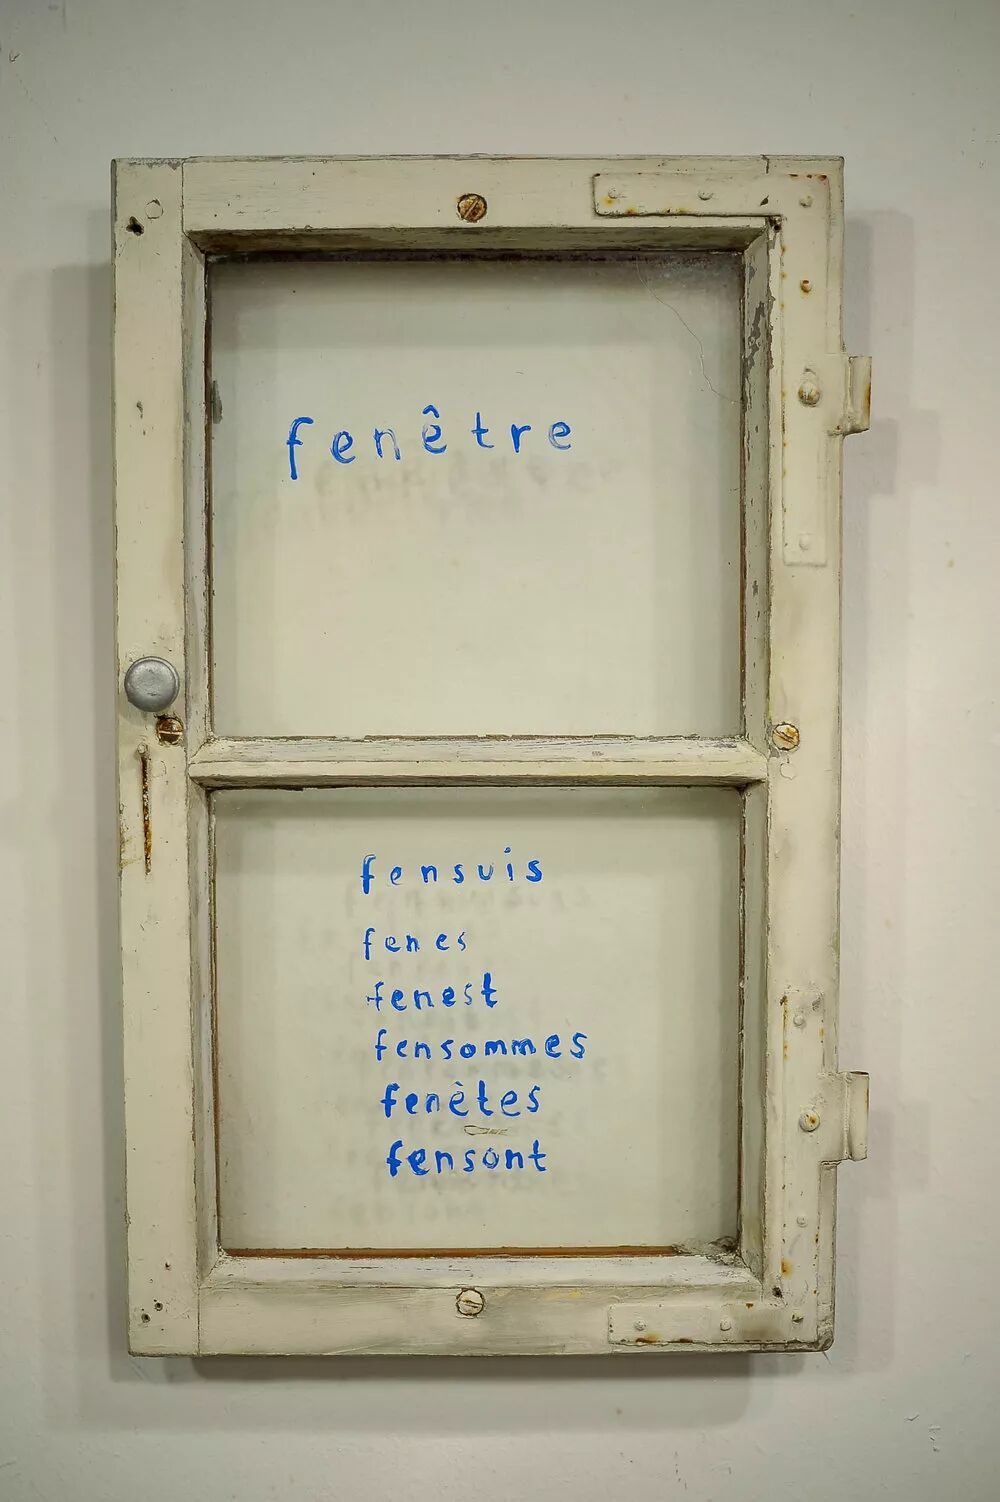 fenêtre
fensuis
fenes
fenest
fensommes
fenètes
fensont